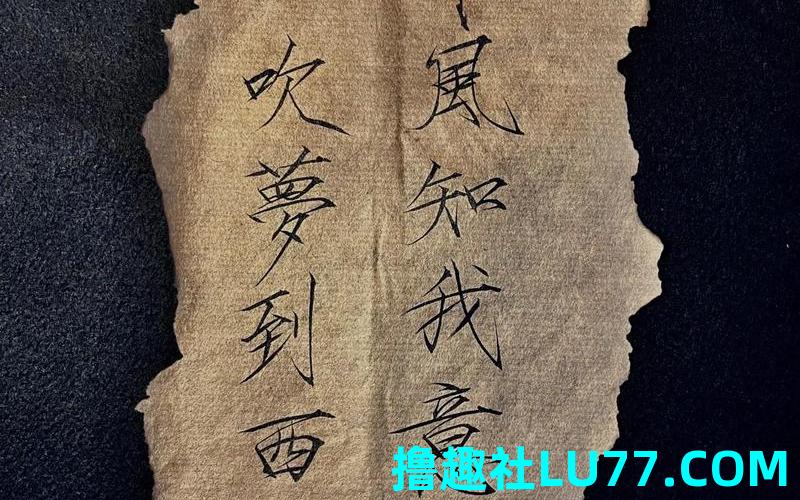 風知我意
吹夢到西
撸趣社LU77.COM